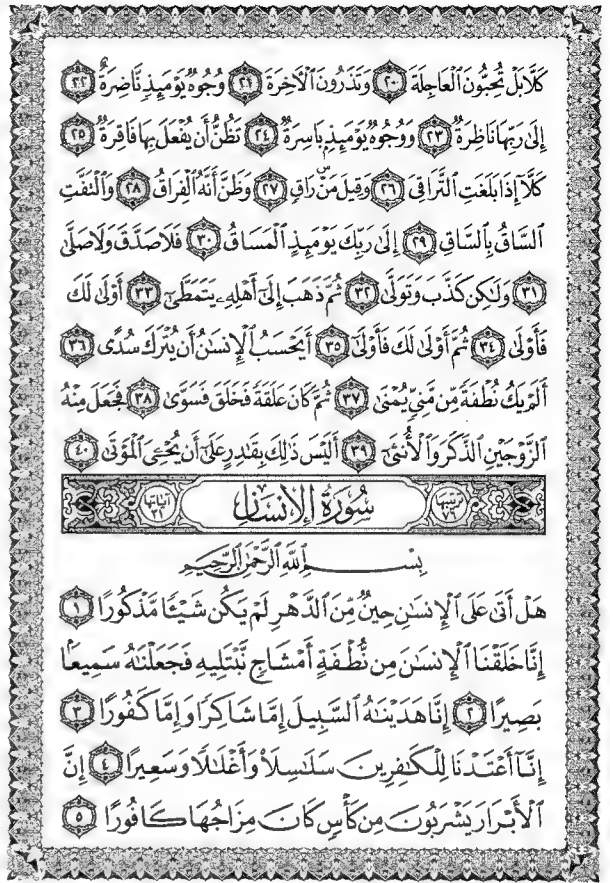 كَلَّا بَلْ تُحِبُّونَ ٱلْعَاجِلَةَ ٢٠ وَتَذَرُونَ ٱلْءَاخِرَةَ ٢١ وُجُوهٌ يَوْمَئِذٍ نَّاضِرَةٌ ٢٢
إِلَىٰ رَبِّهَا نَاظِرَةٌ ٢٣ وَوُجُوهٌ يَوْمَئِذٍ بَاسِرَةٌ ٢٤ تَظُنُّ أَن يُفْعَلَ بِهَا فَاقِرَةٌ ٢٥
كَلَّآ إِذَا بَلَغَتِ ٱلتَّرَاقِىَ ٢٦ وَقِيلَ مَنْ ۜ رَاقٍ ٢٧ وَظَنَّ أَنَّهُ ٱلْفِرَاقُ ٢٨ وَٱلْتَفَّتِ
ٱلسَّاقُ بِٱلسَّاقِ ٢٩ إِلَىٰ رَبِّكَ يَوْمَئِذٍ ٱلْمَسَاقُ ٣٠ فَلَا صَدَّقَ وَلَا صَلَّىٰ
٣١ وَلَٰكِن كَذَّبَ وَتَوَلَّىٰ ٣٢ ثُمَّ ذَهَبَ إِلَىٰٓ أَهْلِهِۦ يَتَمَطَّىٰٓ ٣٣ أَوْلَىٰ لَكَ
فَأَوْلَىٰ ٣٤ ثُمَّ أَوْلَىٰ لَكَ فَأَوْلَىٰٓ ٣٥ أَيَحْسَبُ ٱلْإِنسَٰنُ أَن يُتْرَكَ سُدًى ٣٦
أَلَمْ يَكُ نُطْفَةً مِّن مَّنِىٍّ يُمْنَىٰ ٣٧ ثُمَّ كَانَ عَلَقَةً فَخَلَقَ فَسَوَّىٰ ٣٨ فَجَعَلَ مِنْهُ
ٱلزَّوْجَيْنِ ٱلذَّكَرَ وَٱلْأُنثَىٰٓ ٣٩ أَلَيْسَ ذَٰلِكَ بِقَٰدِرٍ عَلَىٰٓ أَن يُحْۦِىَ ٱلْمَوْتَىٰ ٤٠
سُورَةُ ٱلْإِنسَانِ
بِسْمِ ٱللَّهِ ٱلرَّحْمَٰنِ ٱلرَّحِيمِ
هَلْ أَتَىٰ عَلَى ٱلْإِنسَٰنِ حِينٌ مِّنَ ٱلدَّهْرِ لَمْ يَكُن شَيْـًٔا مَّذْكُورًا ١
إِنَّا خَلَقْنَا ٱلْإِنسَٰنَ مِن نُّطْفَةٍ أَمْشَاجٍ نَّبْتَلِيهِ فَجَعَلْنَٰهُ سَمِيعًۢا
بَصِيرًا ٢ إِنَّا هَدَيْنَٰهُ ٱلسَّبِيلَ إِمَّا شَاكِرًا وَإِمَّا كَفُورًا ٣
إِنَّآ أَعْتَدْنَا لِلْكَٰفِرِينَ سَلَٰسِلَا۟ وَأَغْلَٰلًا وَسَعِيرًا ٤ إِنَّ
ٱلْأَبْرَارَ يَشْرَبُونَ مِن كَأْسٍ كَانَ مِزَاجُهَا كَافُورًا ٥